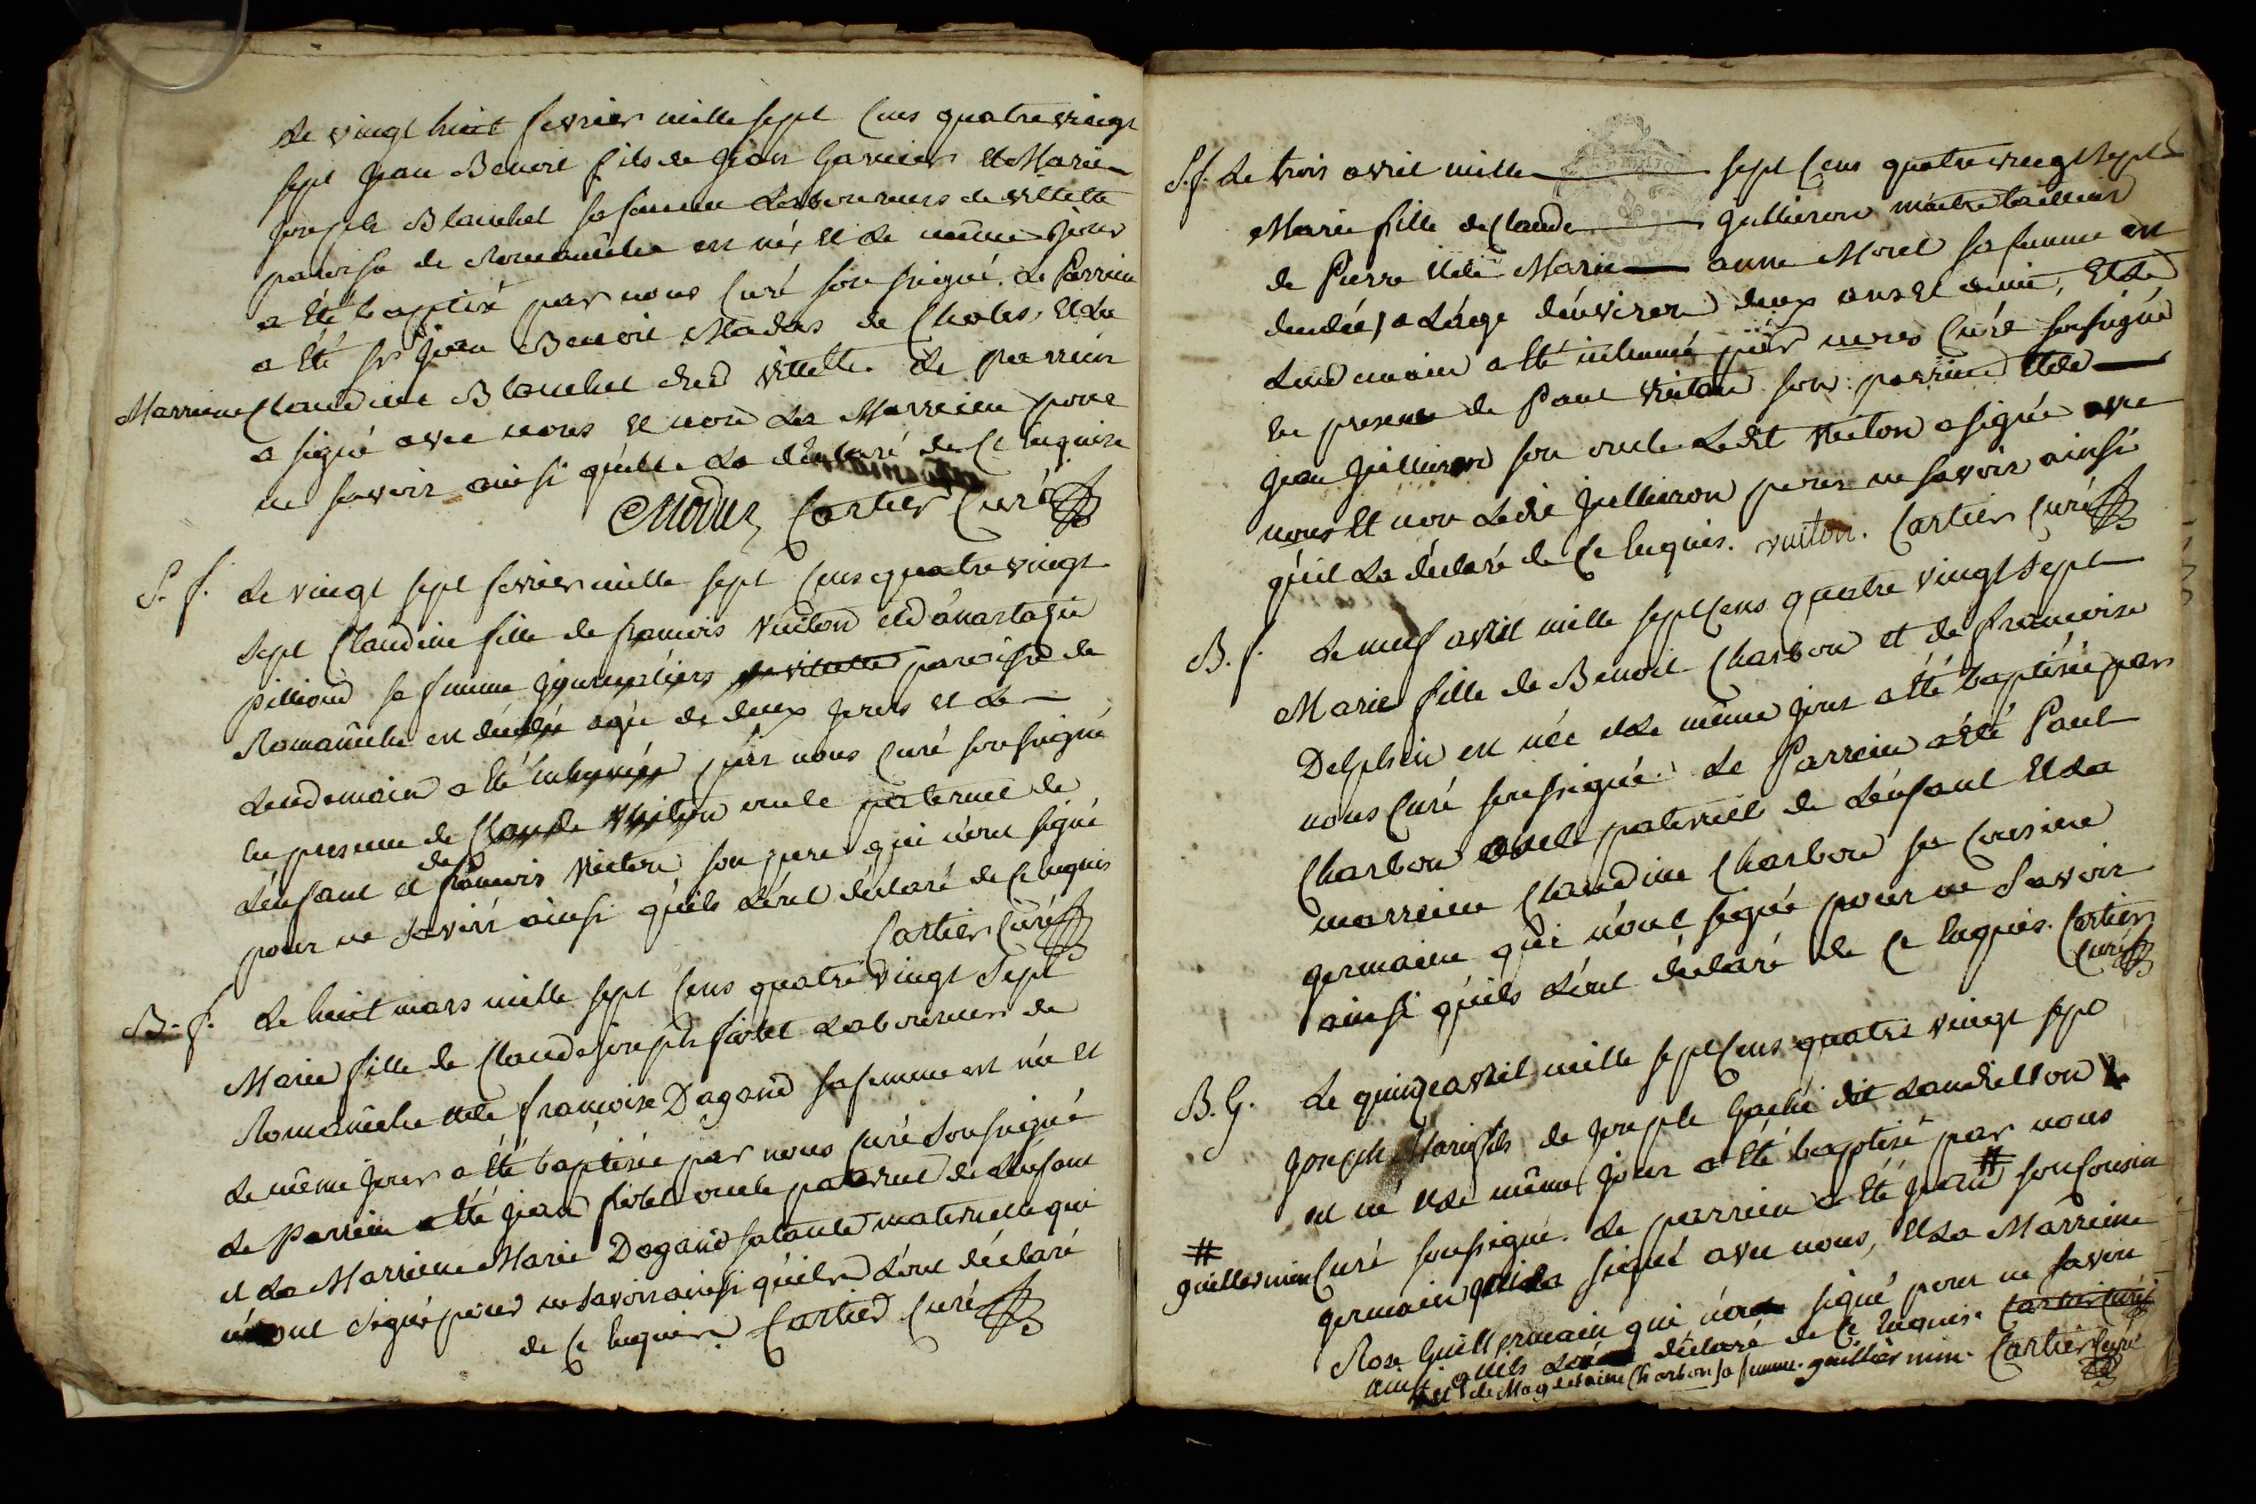 Le vingt huit fevrier mille sept cens quatre vingt
sept Jean Benoit fils de Jean Garnier et Marie
Joseph Blanchet sa femme Laboureurs de villette
paroisse de Romanêche est né, et Le même jour
a été baptisé par nous Curé soussigné. Le Parrein
a été sr Jean Benoit Madas de Choles, et La
Marreine Claudine Blanchet dud villette. Le parrein
a signé avec nous et non La Marreine pour
ne savoir ainsi qu'elle La déclaré de Ce Enquise
Cartier Curé
S. f. Le vingt sept fevrier mille sept cens quatre vingt
sept Claudine fille de francois Vuiton et d'anastasie
pilliond sa femme journaliers de villette paroisse de
Romanêche est décédée agée de deux jours et Le
Lendemain a été inhumée par nous Curé soussigné
En presence de Claude Vuiton oncle paternel de
L'enfant et de francois Vuiton son pere qui n'ont signé
pour ne savoir ainsi qu'ils L'ont déclaré de Ce Enquis
Cartier Curé
B. f. Le huit mars mille sept cens quatre vingt Sept
Marie fille de Claude joseph firtet Laboureur de
Romanêche et de francoise Dagand sa femme est née et
Le même jour a été baptisée par nous Curé Soussigné
Le Parrein a été jean firtet oncle paternel de L'enfant
et La Marreine Marie Dagand sa tante maternelle qui
n'ont signé pour ne savoir ainsi qu'ils L'ont déclaré
de Ce Enquis. Cartier Curé
S. f. Le trois avril mille sept cens quatre vingt sept
Marie fille de Claude jullieron maitre tailleur
de Pierre et de Marie anne Morel sa femme est
décédée, a L'age d'environ deux ans et demie, et Le
Lendemain a été inhumé par nous Curé soussigné
En presence de Paul Vuiton son parrein et de
jean jullieron son oncle Ledit Vuiton a signé avec
nous et non Ledit jullieron pour ne savoir ainsi
qu'il La déclaré de Ce Enquis. vuiton. Cartier Curé
B. f. Le neuf avril mille sept cens quatre vingt sept
Marie fille de Benoit Charbon et de francoise
Delphin est née et Le même jour a été baptisée par
nous Curé soussigné. Le Parrein a été Paul
Charbon oncle paternel de L'enfant et La
marreine Claudine Charbon sa Cousine
germaine qui n'ont signé pour ne Savoir
ainsi qu'ils L'ont déclaré de Ce Enquis. Cartier
Curé
B. G. Le quinze avril mille sept cens quatre vingt sept
joseph Marie fils de joseph Gaché dit Landrillon #
est né et Le même jour a été baptisé par nous
Curé soussigné. Le parrein a été jean # son Cousin
# guillermin
germain qui a signé avec nous, et La Marreine
Rose Guillermain qui n'ont signé pour ne savoir
ainsi qu'ils déclaré de Ce Enquis. Cartier Curé
et de Magdelaine Charbon sa femme. guillermin. Cartier Curé